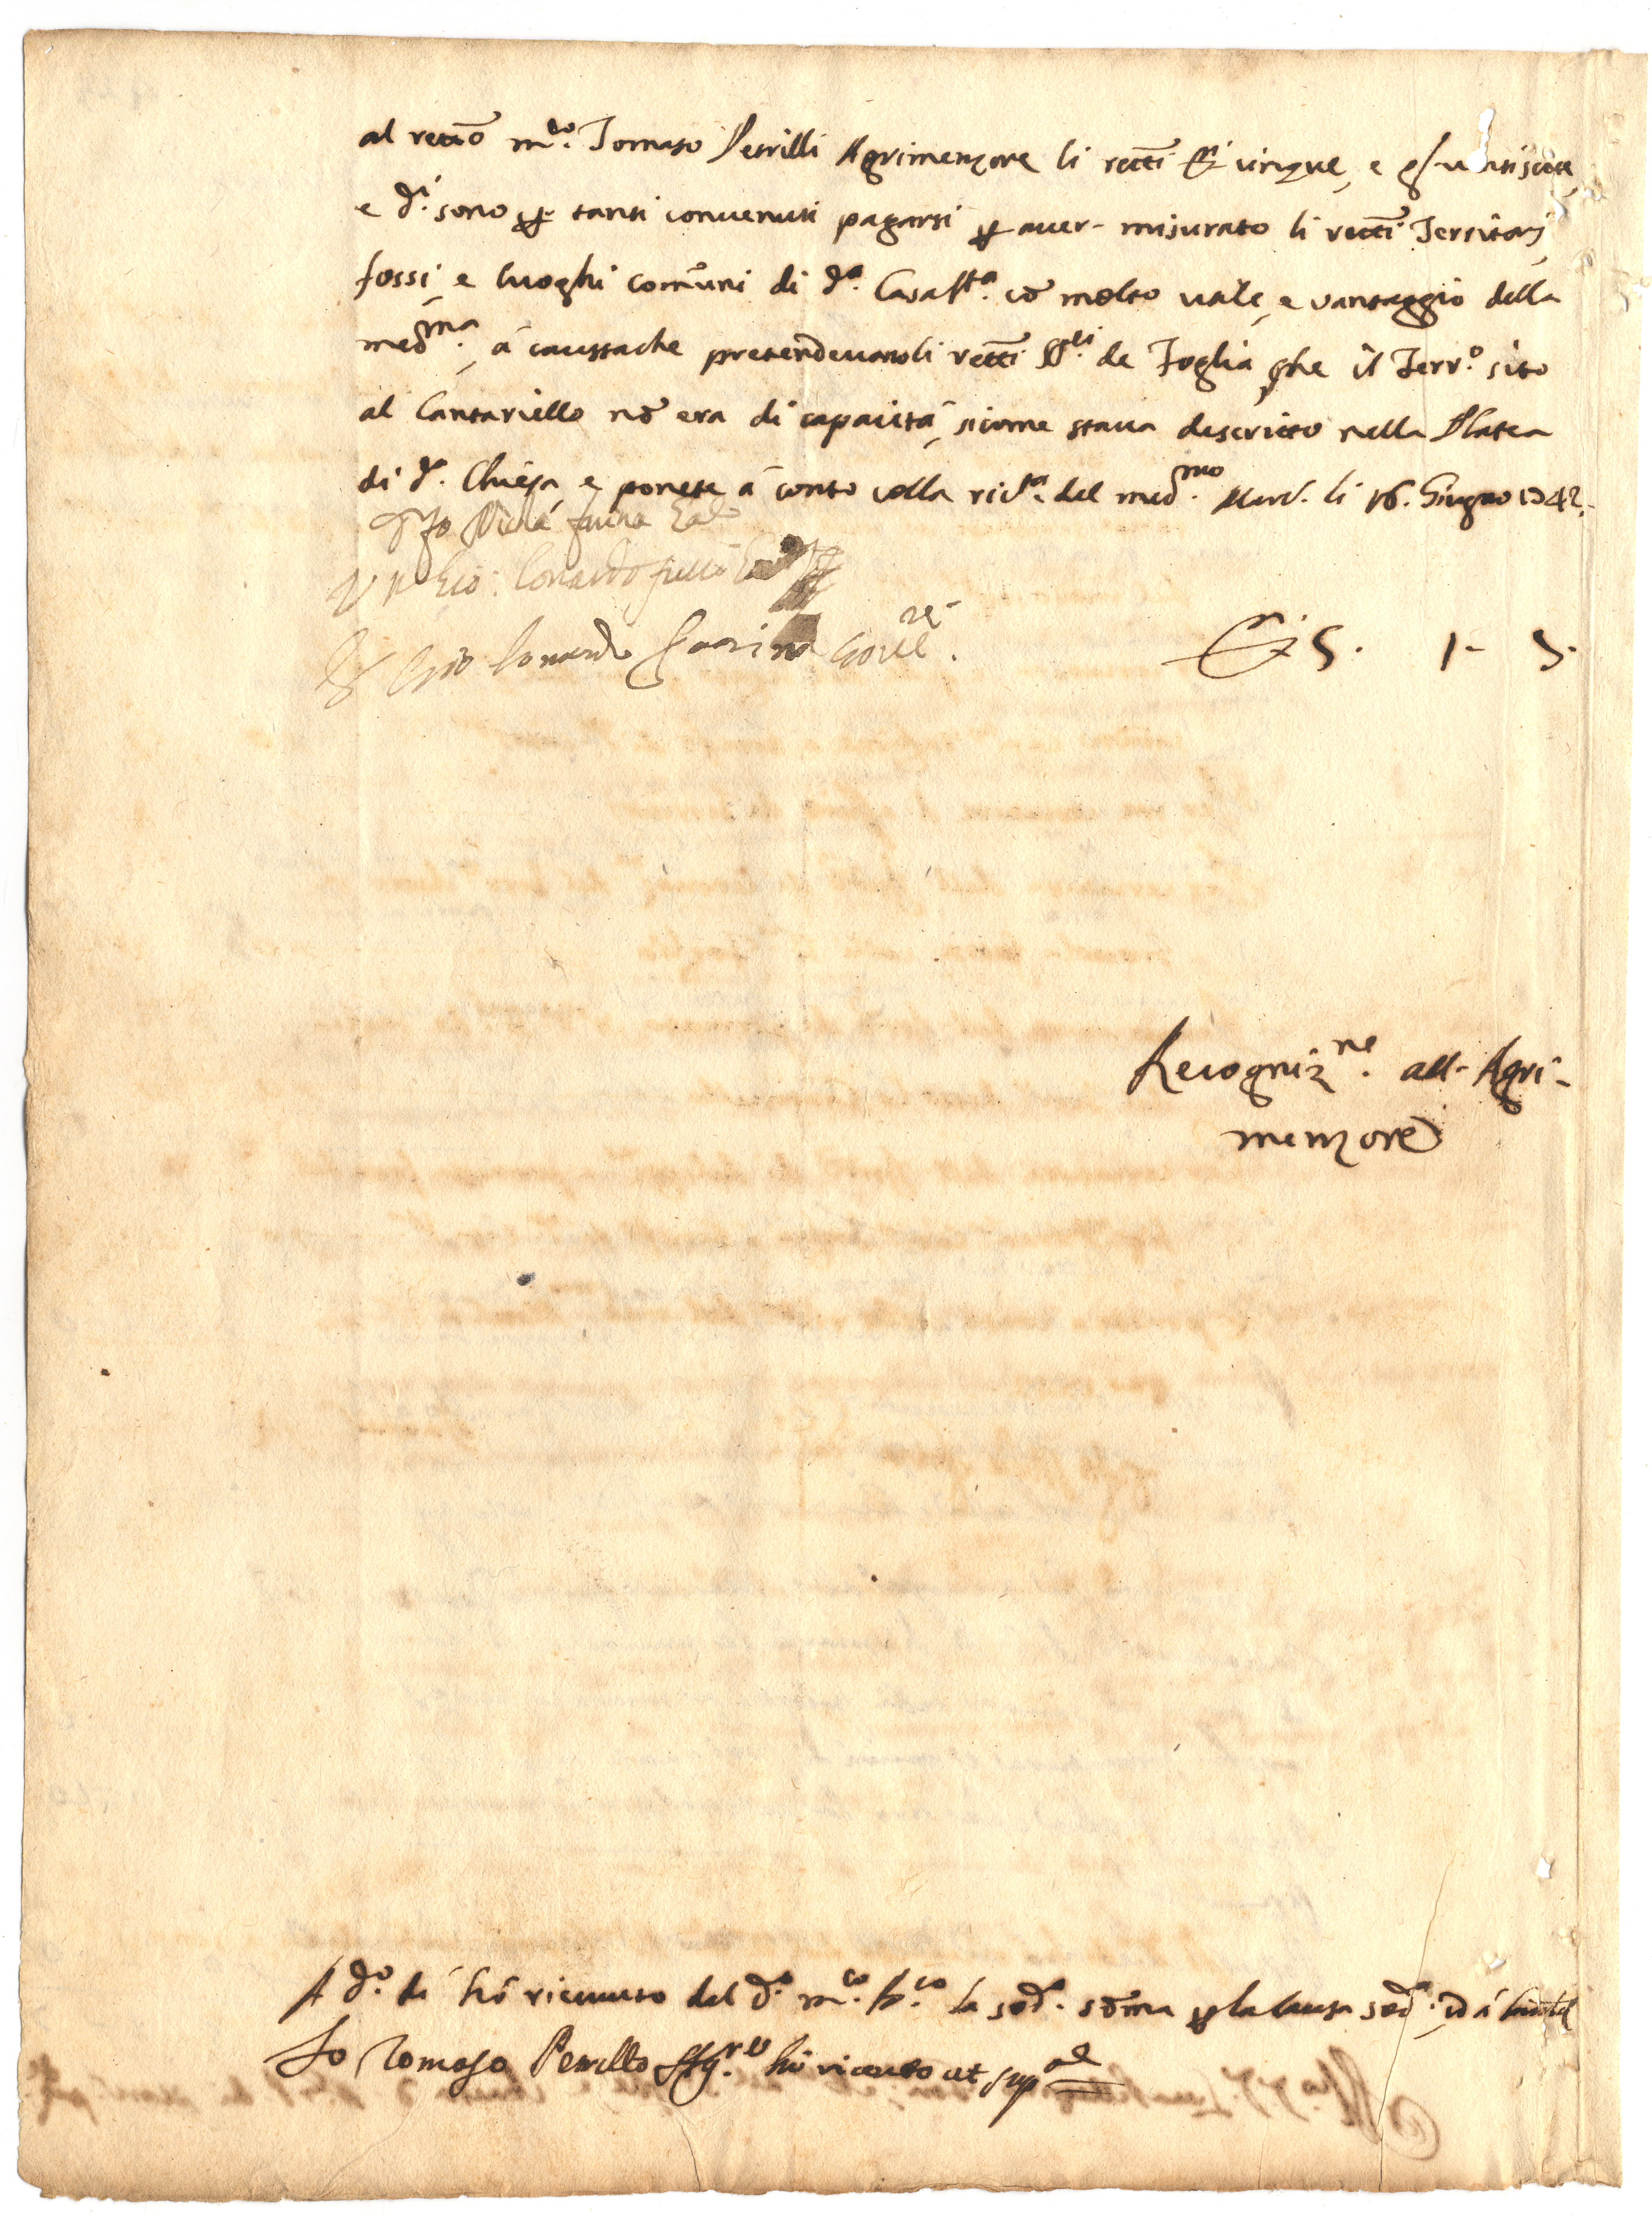 al rettõ m.co Tomaso Petrilli Agrimenzore li retti D.ti cinque, e
e d.i sono per tanti convenuti pagarsi per aver misurato li retti Territorj,
fossi, e luoghi comuni di d.a Casa S.ta cõ molto utile, e vantaggio della
med.ma, à caussache pretendevano li retti de Foglia, che il Terr.o sito
al Cantariello nõ era di capacità, sicome stava descritto nella Platea
di d.a Chiesa, e ponete à conto colla ric.ta del med.mo li 16. Giugno 1742.
Io
Gio: Lonardo
Gio Lonardo
D.ti 5. 1- 5.
Recogniz.ne all' Agri-
menzore
A d.o dì hò ricevuto dal d.o m.co la sod.a sõma per la causa sod.a
Io Tomaso Petrillo hò riceuto ut sup.a